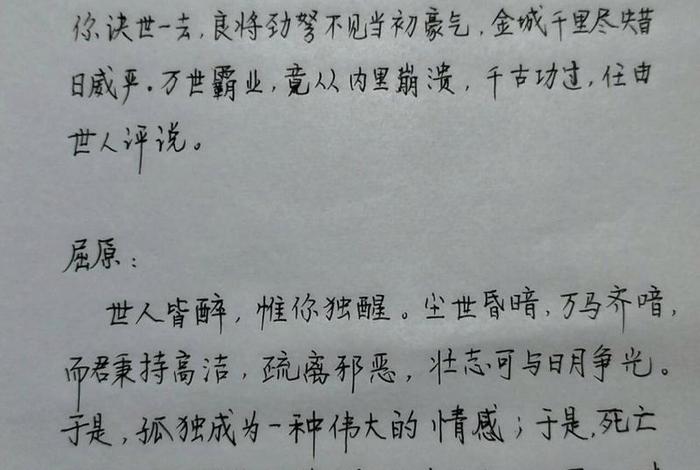 你诀世一去，良将劲弩不见当初豪气，金城千里尽失昔
日威严。万世霸业，竟从内里崩溃，千古功过，任由
世人评说。
屈原：
世人皆醉，惟你独醒。尘世昏暗，万马齐喑，
而君秉持高洁，疏离邪恶，壮志可与日月争光。
于是，孤独成为一种伟大的情感；于是，死亡